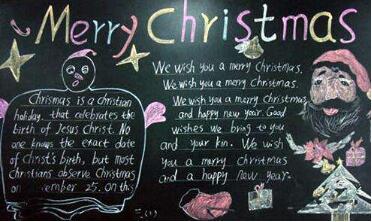 Merry Christmas
Chrismas is a christian
holiday that celebrates the
birth of Jesus Christ. No
one knows the exact date
of Christ's birth, but most
Christians observe Christmas
on 25. On this
We wish you a merry christmas.
We wish you a merry christmas.
We wish you a marry christmas
and happy new year. Good
wishes we bring to you
and your kin. We wish
you a merry christmas
and a happy new year.